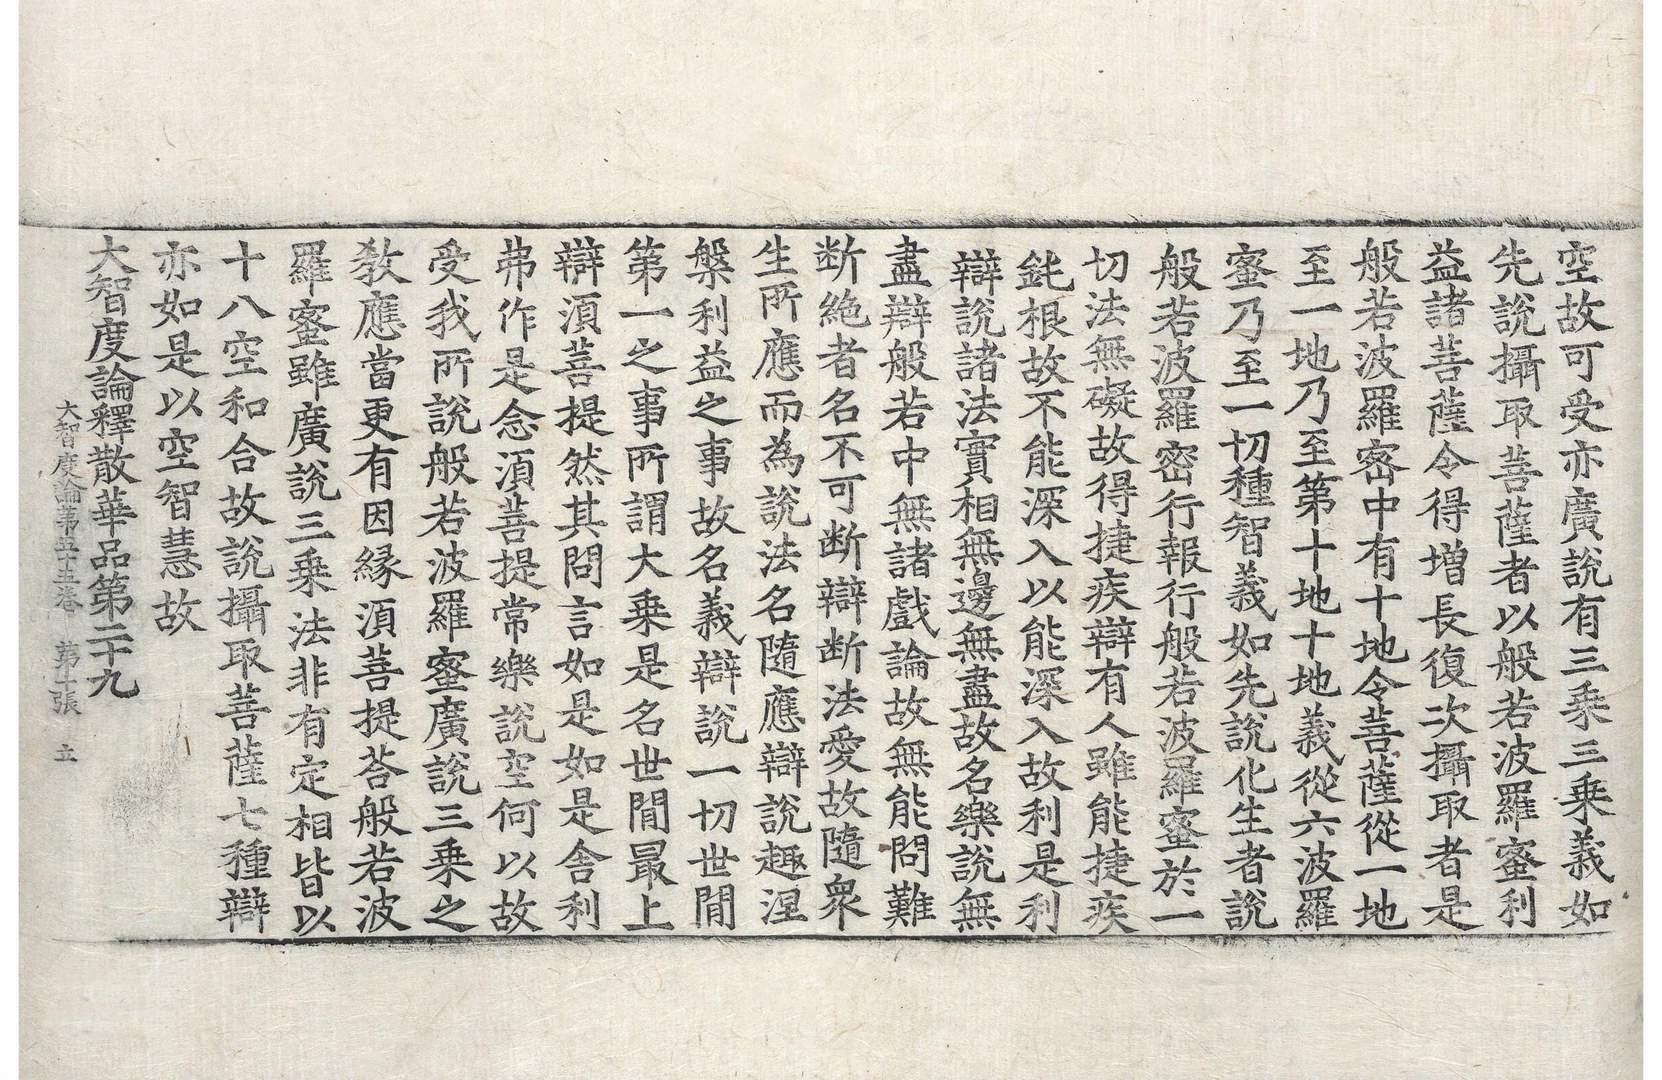 空故可受亦廣說有三乘三乘義如
先說攝取菩薩者以般若波羅蜜利
益諸菩薩令得增長復次攝取者是
般若波羅蜜中有十地令菩薩從一地
至一地乃至第十地十地義從六波羅
蜜乃至一切種智義如先說化生者說
般若波羅密行報行般若波羅蜜於一
切法無礙故得捷疾辯有人雖能捷疾
鈍根故不能深入以能深入故利是利
辯說諸法實相無邊無盡故名樂說無
盡辯般若中無諸戲論故無能問難
断絶者名不可断辯断法愛故隨衆
生所應而為說法名隨應辯說趣涅
槃利益之事故名義辯說一切世間
第一之事所謂大乘是名世間最上
辯湏菩提然其問言如是如是舍利
弗作是念湏菩提常樂說空何以故
受我所說般若波羅蜜廣說三乘之
教應當更有因緣湏菩提荅般若波
羅蜜雖廣說三乘法非有定相皆以
十八空和合故說攝取菩薩七種辯
亦如是以空智慧故
大智度論釋散華品第二十九
大智度論第五十五卷 第十張 立